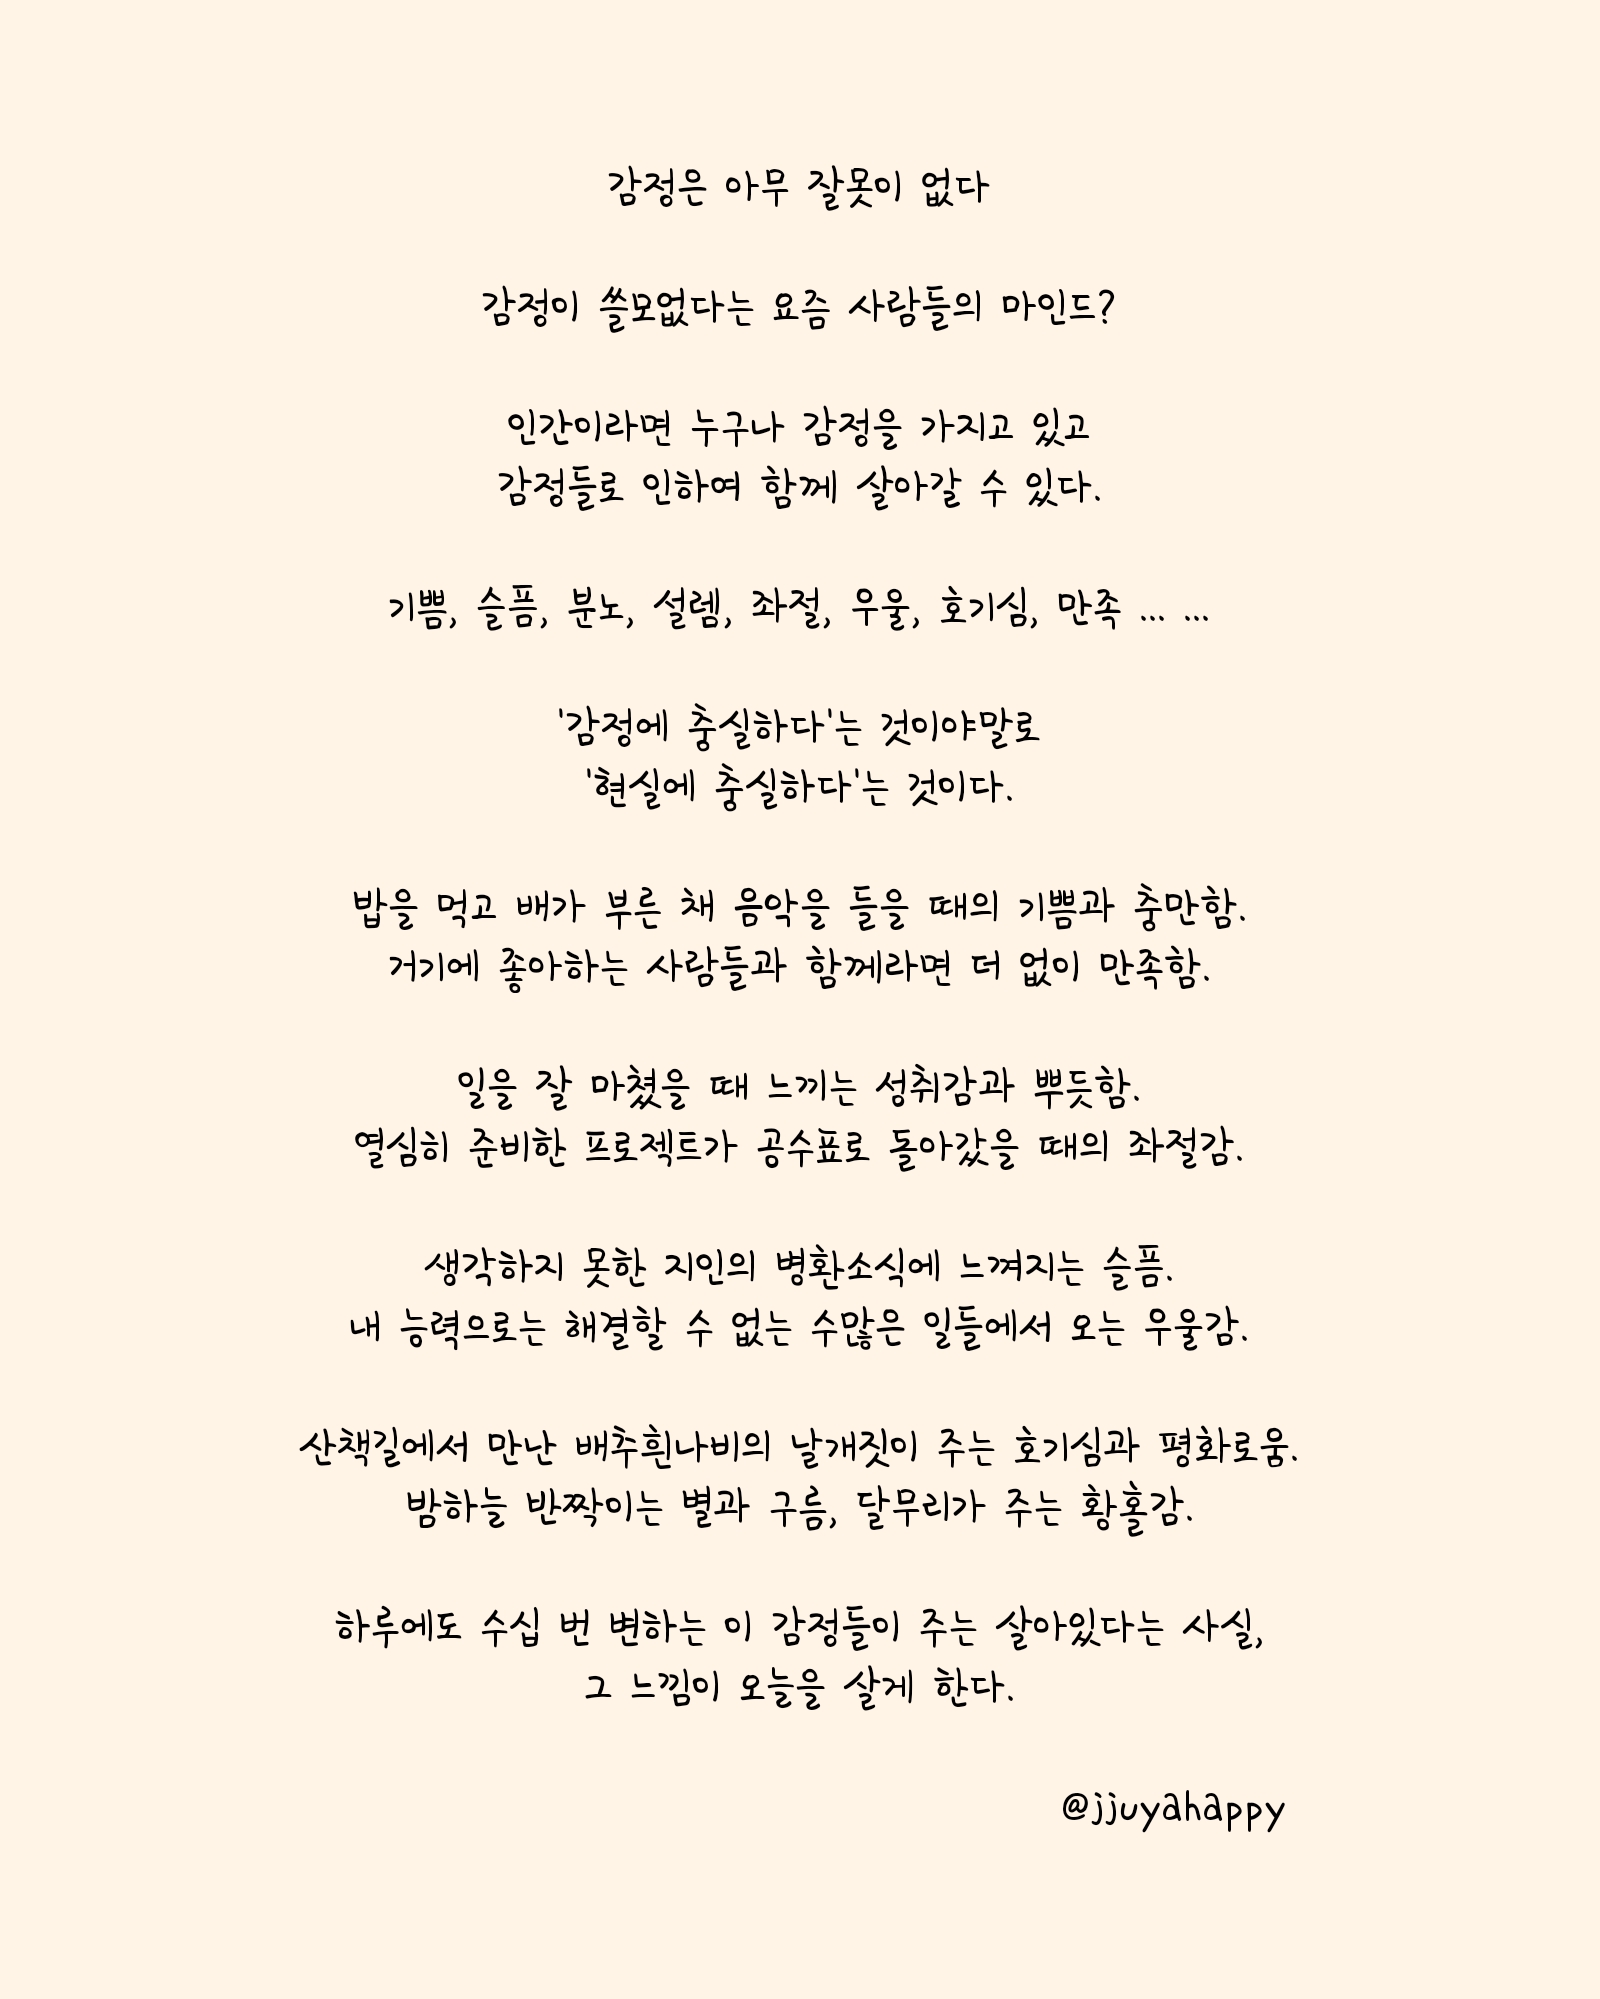 감정은 아무 잘못이 없다
감정이 쓸모없다는 요즘 사람들의 마인드?
인간이라면 누구나 감정을 가지고 있고
감정들로 인하여 함께 살아갈 수 있다.
기쁨, 슬픔, 분노, 설렘, 좌절, 우울, 호기심, 만족 ... ...
'감정에 충실하다'는 것이야말로
'현실에 충실하다'는 것이다.
밥을 먹고 배가 부른 채 음악을 들을 때의 기쁨과 충만함.
거기에 좋아하는 사람들과 함께라면 더 없이 만족함.
일을 잘 마쳤을 때 느끼는 성취감과 뿌듯함.
열심히 준비한 프로젝트가 공수표로 돌아갔을 때의 좌절감.
생각하지 못한 지인의 병환소식에 느껴지는 슬픔.
내 능력으로는 해결할 수 없는 수많은 일들에서 오는 우울감.
산책길에서 만난 배추흰나비의 날개짓이 주는 호기심과 평화로움.
밤하늘 반짝이는 별과 구름, 달무리가 주는 황홀감.
하루에도 수십 번 변하는 이 감정들이 주는 살아있다는 사실,
그 느낌이 오늘을 살게 한다.
@jjuyahappy